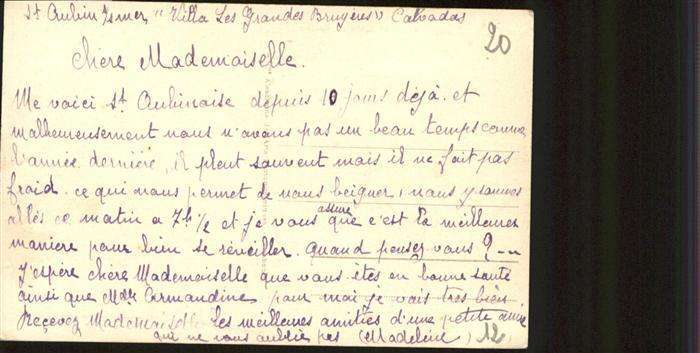 St Aubin s/mer "Villa Les Grandes Bruyères" Calvados
20
Chère Mademoiselle.
Me voici St Aubinaise depuis 10 jours déjà. et
malheureusement nous n'avons pas un beau temps comme
l'année dernière, il pleut souvent mais il ne fait pas
froid. ce qui nous permet de nous beigner, nous y sommes
allés ce matin a 7h ½ et je vous assure que c'est la meilleure
maniere pour bien se réveiller. Quand pensez vous ?...
J'espère chère Mademoiselle que vous êtes en bonne santé
ainsi que Mdle Armandine pour moi je vais très bien.
Recevez Mademoiselle les meilleures amitiés d'une petite amie
qui ne vous oublie pas (Madeleine) 12